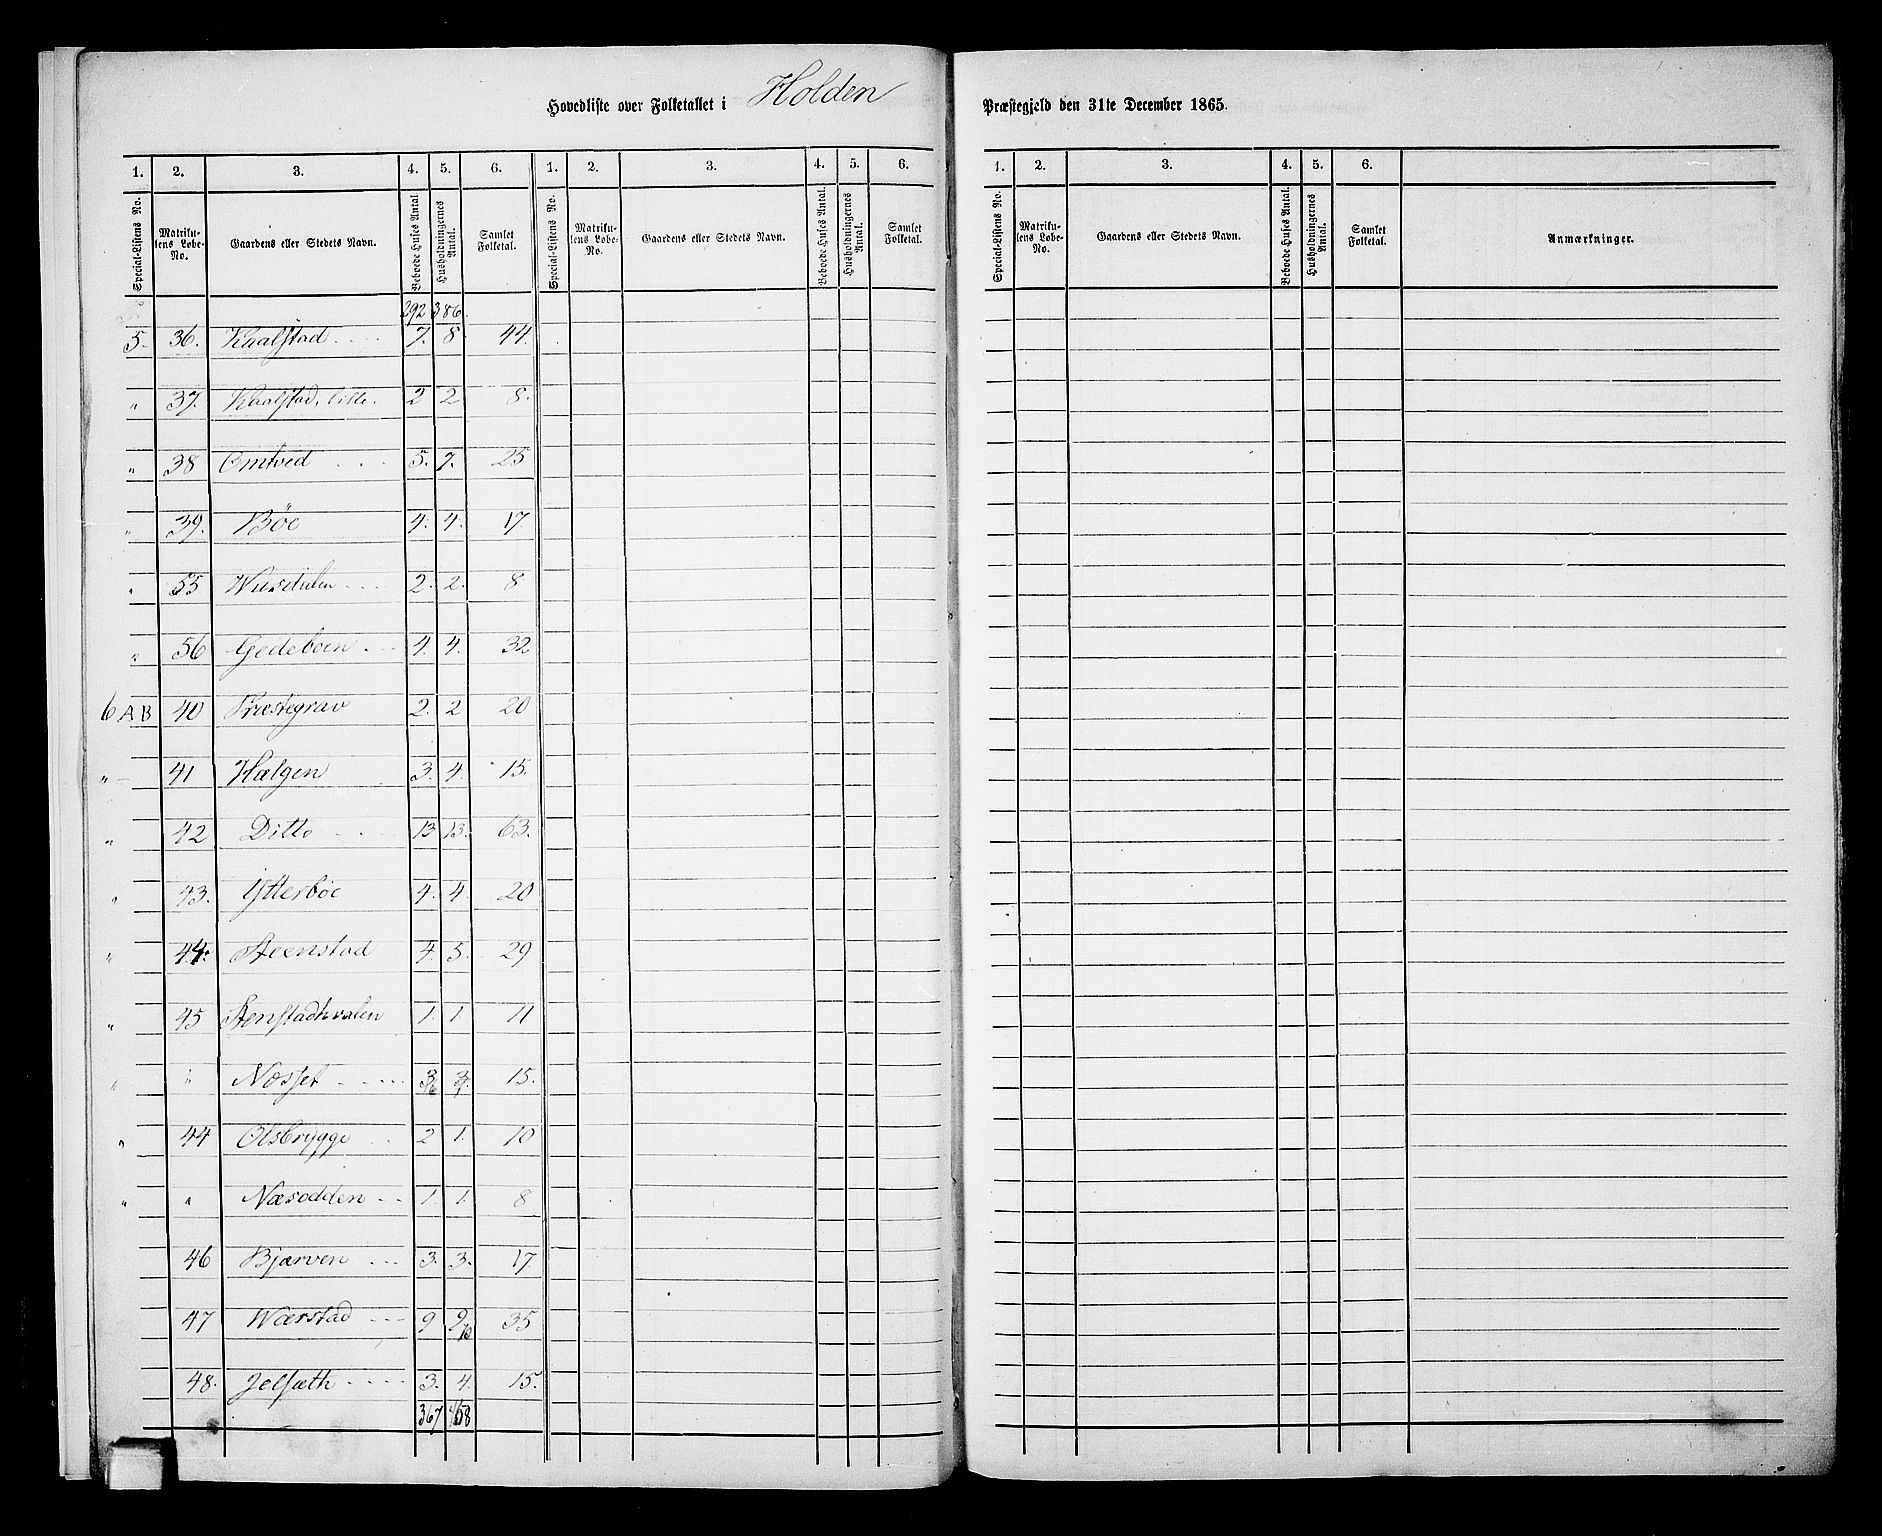 Hovedliste over Folketallet i Holden Præstegjeld den 31te December 1865.
1. 2. 3. 4. 5. 6. 1. 2. 3. 4. 5. 6. 1. 2. 3. 4. 5. 6.
Special-Listens No. Matrikulens Løbe-No. Gaardens eller Stedets Navn. Beboede Huses Antal Husholdningernes Antal. Samlet Folketal. Special-Listens No. Matrikulens Løbe-No. Gaardens eller Stedets Navn. Beboede Huses Antal. Husholdningernes Antal. Samlet Folketal. Special-Listens No. Matrikulens Løbe-No. Gaardens eller Stedets Navn. Beboede Huses Antal. Husholdningernes Antal. Samlet Folketal. Anmærkninger.
292 386.
5. 36. Kaalstad 7. 8. 44.
" 37. Kaalstad, lille. 2 2 8.
" 38 Omtved 5. 7. 25
" 39. Bøe 4. 4. 17.
" 55 2. 2. 8
" 56 Gedeboen 4. 4. 32
6 A B 40 Præstegrav 2. 2 20
" 41 Hælgen 3. 4. 15.
" 42 Ditto 13 13. 63.
" 43. Ytterbøe 4. 4. 20
" 44. Steenstad 4. 5. 29
" 45 Stenstadhvalen 1. 1. 11
" " Næsset 3 3 15.
" 44 Olsbrygge 2 1. 10
" " Næsodden 1. 1. 8
46 Bjærven 3. 3. 17
47 Wærstad 9 9 10 35
48. Jelsæth 3. 4. 15.
367 458